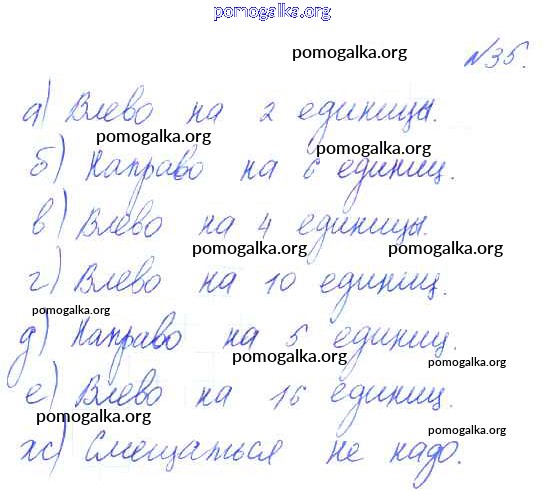 pomogalka.org
pomogalka.org
№35.
а) Влево на 2 единицы.
pomogalka.org
pomogalka.org
б) Направо на 6 единиц.
в) Влево на 4 единицы.
pomogalka.org
pomogalka.org
г) Влево на 10 единиц.
pomogalka.org
pomogalka.org
д) Направо на 5 единиц.
pomogalka.org
pomogalka.org
е) Влево на 16 единиц.
pomogalka.org
pomogalka.org
ж) Смещаться не надо.